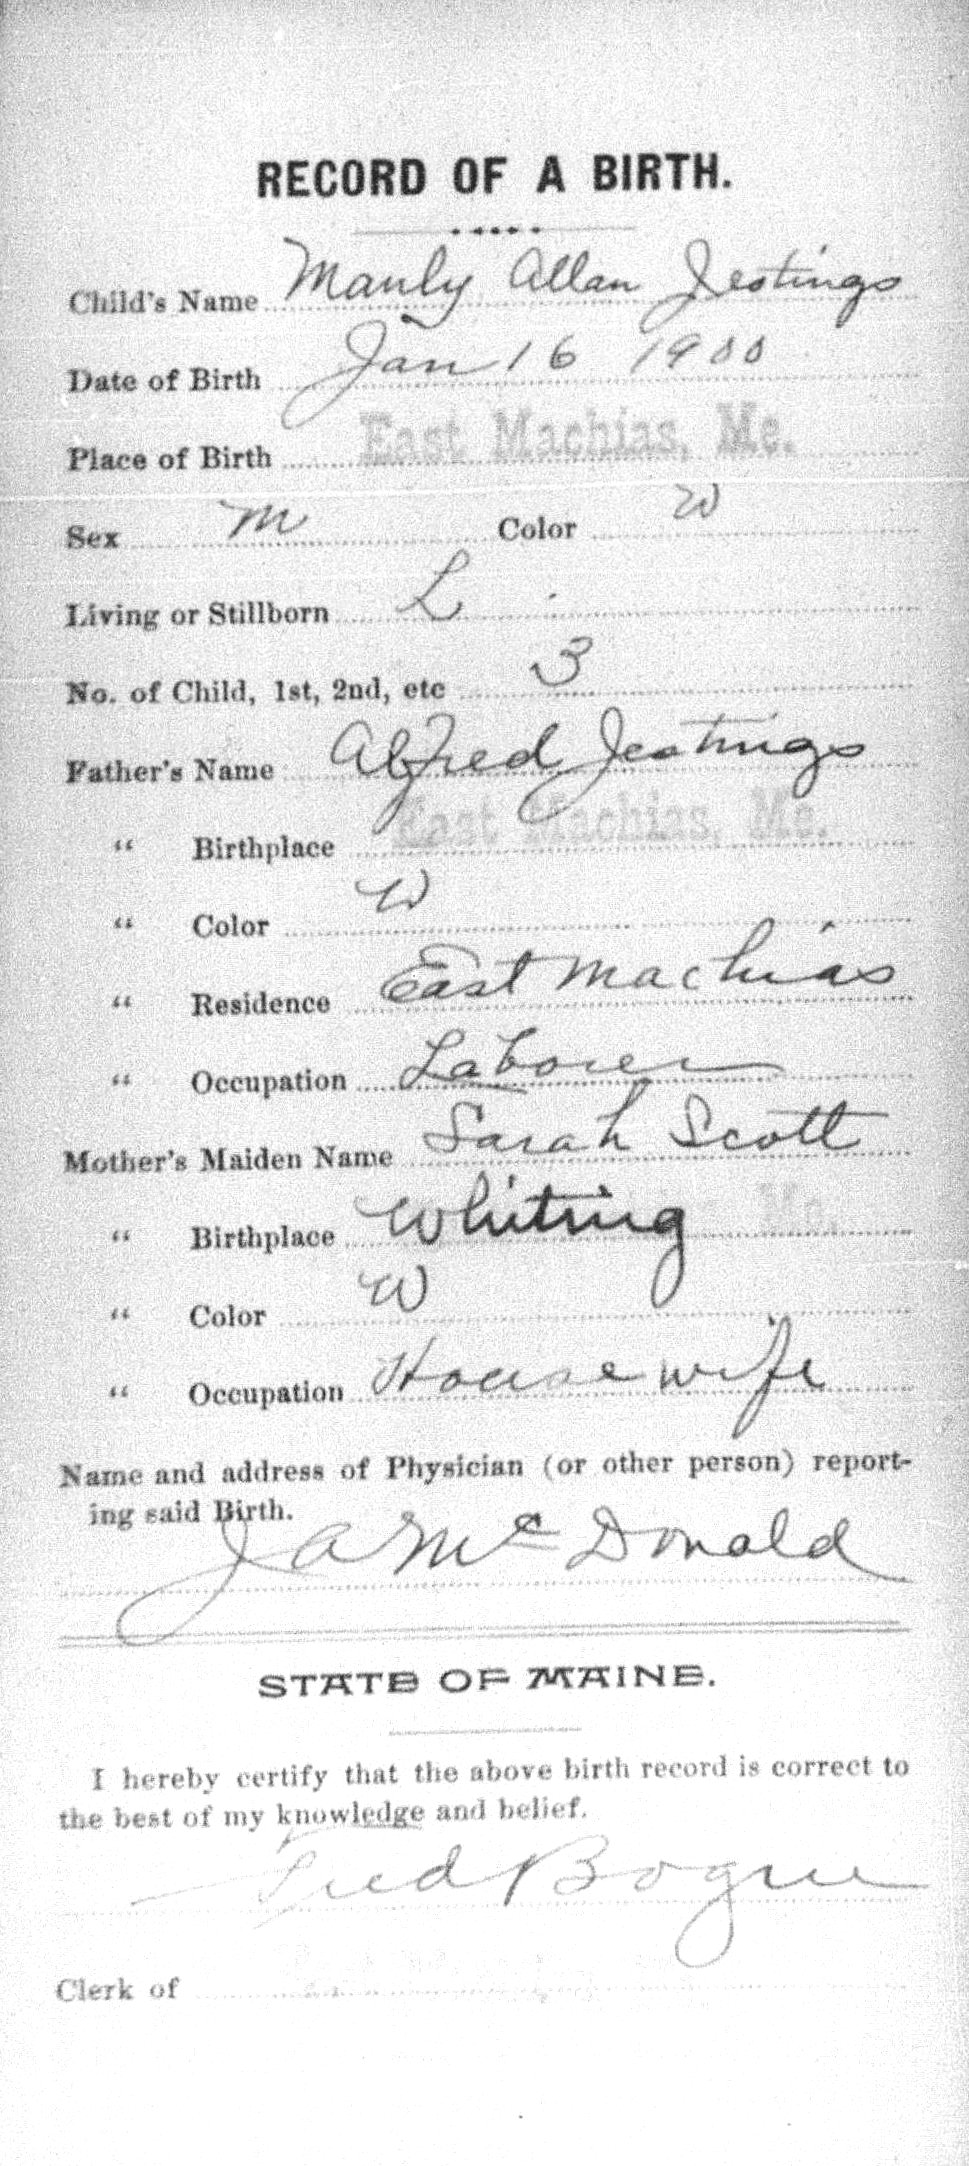 RECORD OF A BIRTH.
Child's Name Manly Allan Jestings
Date of Birth Jan 16 1900
Place of Birth East Machias, Me.
Sex M Color W
Living or Stillborn L
No. of Child, 1st, 2nd, etc 3
Father's Name Alfred Jestings
" Birthplace East Machias, Me.
" Color W
" Residence East Machias
" Occupation Laborer
Mother's Maiden Name Sarah Scott
" Birthplace Whiting
" Color W
" Occupation Housewife
Name and address of Physician (or other person) report-
ing said Birth.
J A Mc Donald
STATE OF MAINE.
I hereby certify that the above birth record is correct to
the best of my knowledge and belief.
Fred Bogue
Clerk of